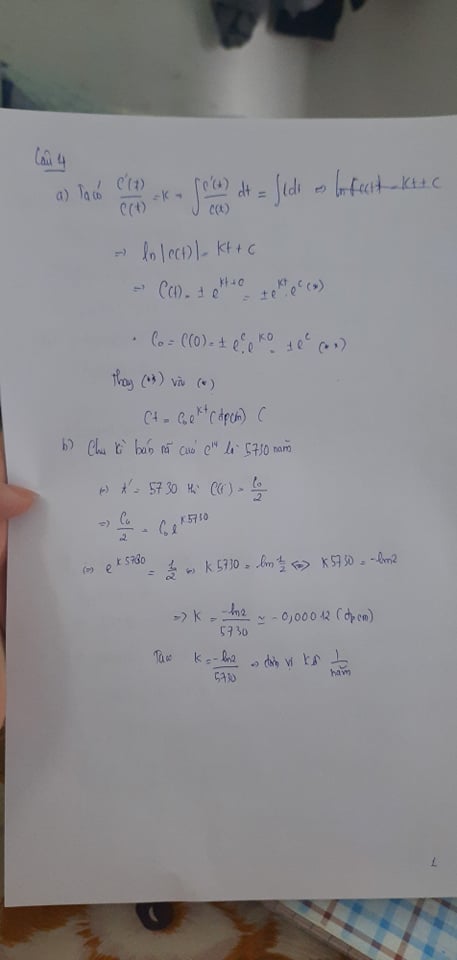 Câu 4
a) Ta có C'(t)/C(t) = K → ∫ C'(t)/C(t) dt = ∫ k dt ⇔ Kt + C
⇒ ln|C(t)| = Kt + C
⇒ C(t) = ± e^{Kt+C} = ± e^{Kt} . e^C (*)
• C₀ = C(0) = ± e^C . e^{K0} = ± e^C (**)
Thay (**) vào (*)
Ct = C₀e^{Kt} (đpcm) (
b) Chu kì bán rã của C¹⁴ là 5730 năm
⇔ t' = 5730 thì C(t') = C₀/2
⇒ C₀/2 = C₀e^{K5730}
⇔ e^{K5730} = 1/2 ⇔ K5730 = ln 1/2 ⇔ K5730 = -ln2
⇒ K = -ln2/5730 ≃ -0,00012 (đpcm)
Ta có K = -ln2/5730 ⇒ đơn vị K là 1/năm
1